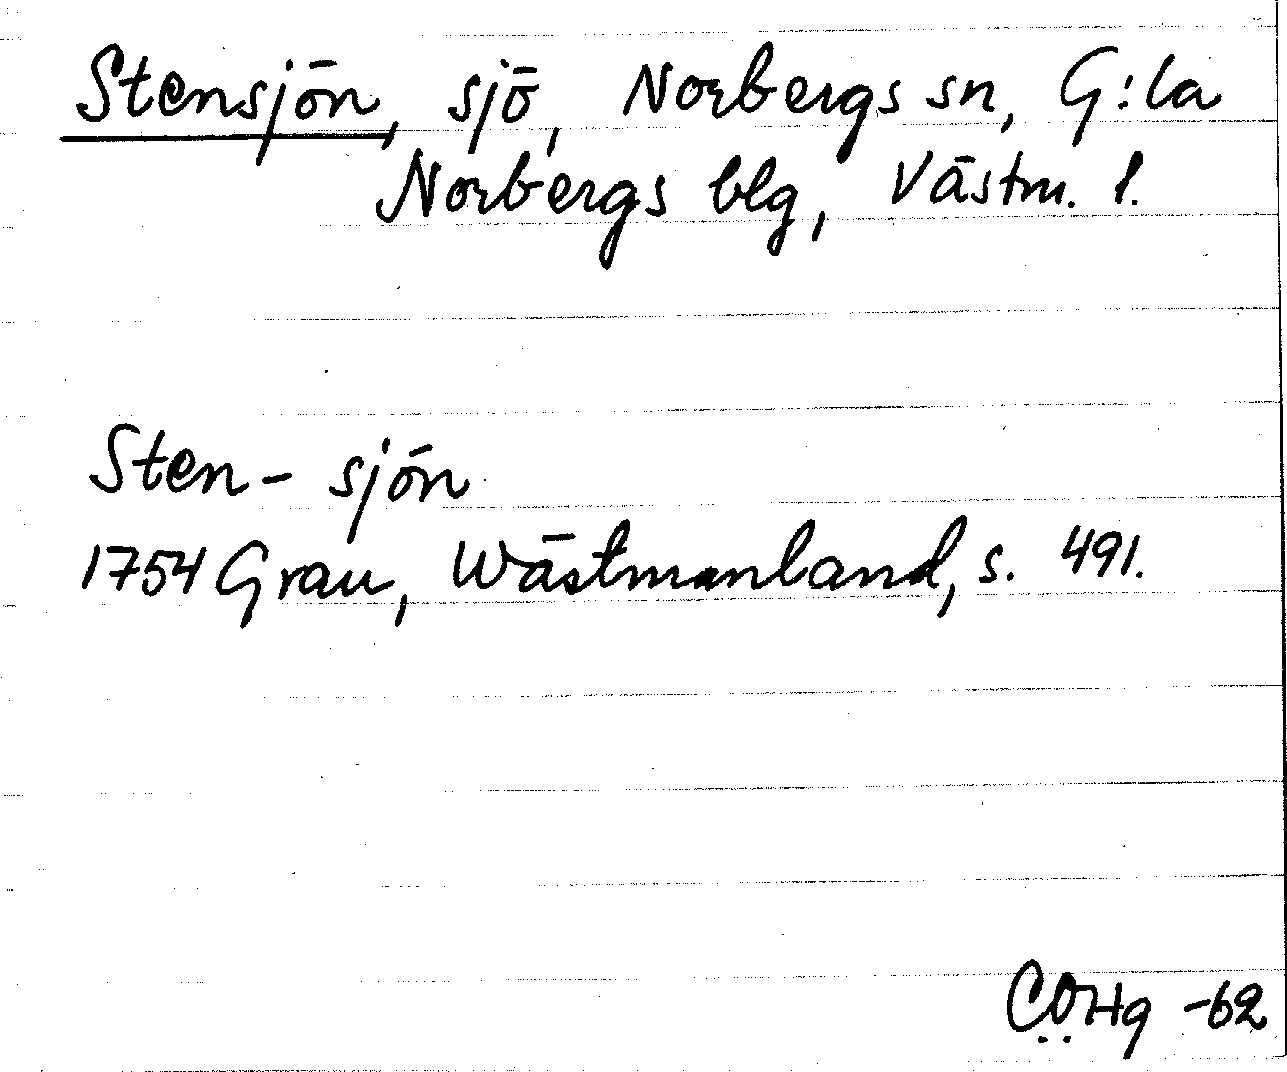 Stensjön, sjö, Norbergs sn, G:la
Norbergs blg, Västm. l.
Sten- sjön
1754 Grau, Wästmanland, s. 491.
CÖHg -62